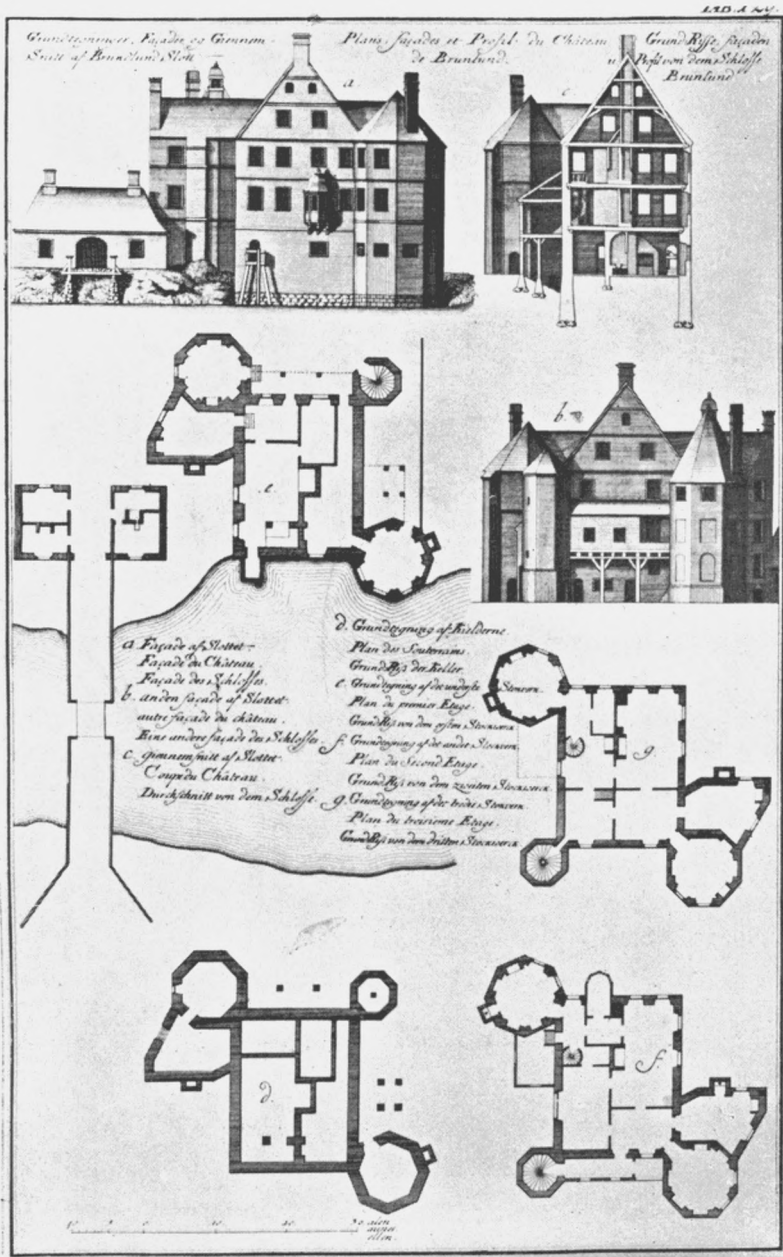 TAB. 129.
Grundtegninger, Façader og Giennem-
Snitt af Brundlund Slott
Plans, façades et Profil du Château
de Brunlund.
Grund Risse, façaden
u: Profil von dem Schlosse
Brunlund
a
c
b
e
a Façade af Slottet
Façade du Château.
Façade des Schlosses.
b. anden façade af Slottet
autre façade du château.
Eine andere façade des Schlosses.
c. giennemsnitt af Slottet
Coupe du Château.
Durchschnitt von dem Schlosse.
d. Grundtegning af Kielderne
Plan des Souterrains.
Grund Riß der Keller.
e. Grundtegning af det underste Stokverk.
Plan du premier Etage.
Grund Riß von dem ersten Stockwerck
f. Grundtegning af det andet Stokverk
Plan du Second Etage.
Grund Riß von dem zweiten Stockwerck
g. Grundtegning af det tredie Stokverk
Plan du troisieme Etage.
Grund Riß von dem dritten Stockwerck
g
d.
f.
10 5 0 10 20 30 alen
aunes
ellen.